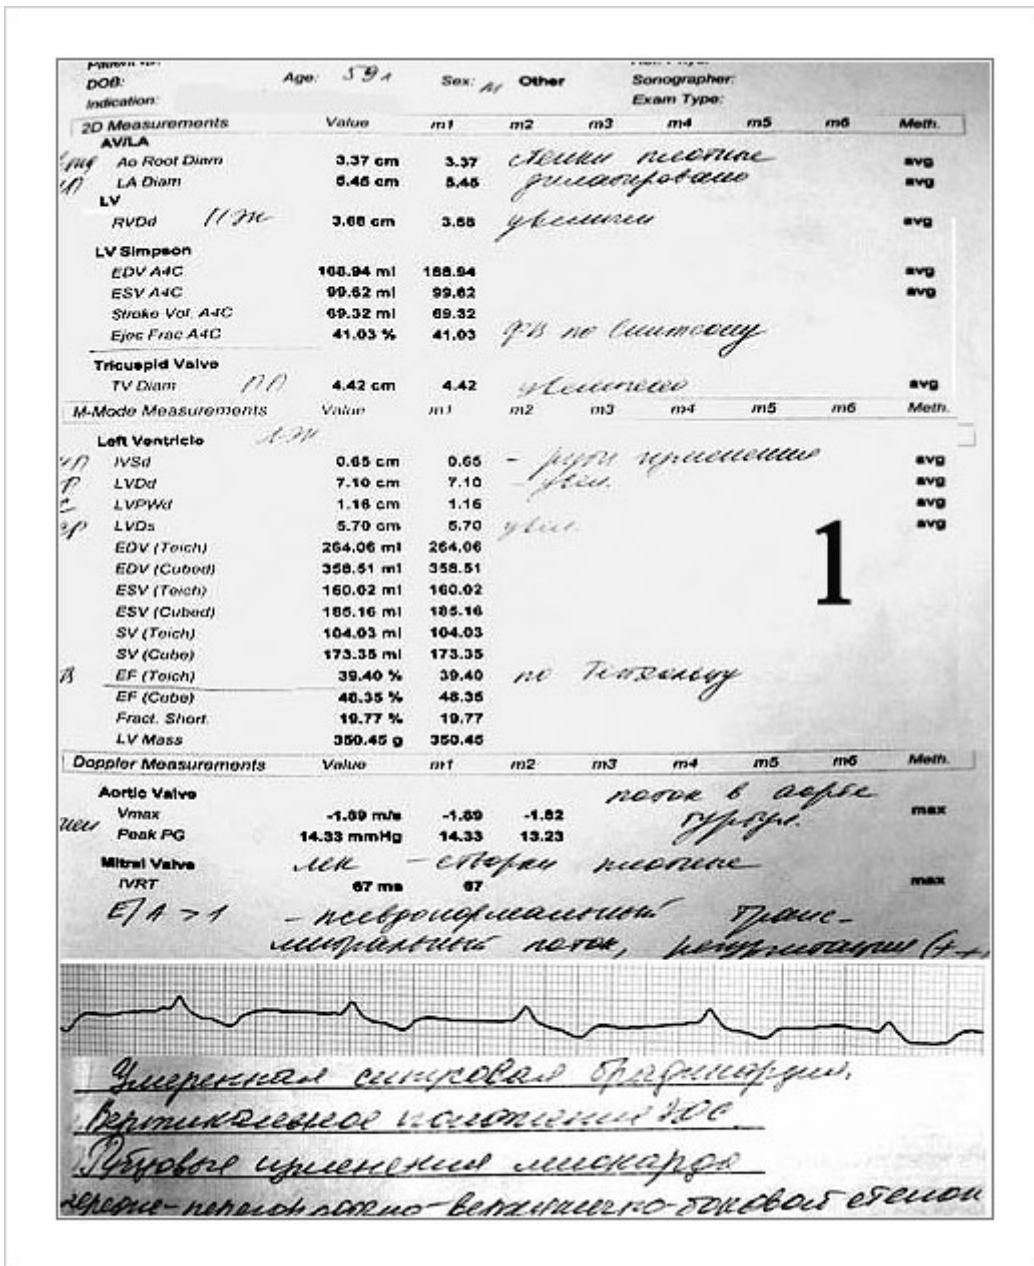 DOB: Age: 59 л Sex: м Other Sonographer:
Indication: Exam Type:
2D Measurements Value m1 m2 m3 m4 m5 m6 Meth.
AV/LA
Ao Root Diam 3.37 cm 3.37 стенки плотные avg
ЛП LA Diam 5.45 cm 5.45 дилатировано avg
LV
RVDd ПЖ 3.68 cm 3.68 увеличен avg
LV Simpson
EDV A4C 168.94 ml 168.94 avg
ESV A4C 99.62 ml 99.62 avg
Stroke Vol. A4C 69.32 ml 69.32
Ejec Frac A4C 41.03 % 41.03 ФВ по Симпсону
Tricuspid Valve
TV Diam ПП 4.42 cm 4.42 увеличено avg
M-Mode Measurements Value m1 m2 m3 m4 m5 m6 Meth.
Left Ventricle ЛЖ
IVSd 0.65 cm 0.65 - рубц изменения avg
LVDd 7.10 cm 7.10 - увел. avg
LVPWd 1.16 cm 1.16 avg
LVDs 5.70 cm 5.70 увел. avg
EDV (Teich) 264.06 ml 264.06
EDV (Cubed) 358.51 ml 358.51
ESV (Teich) 160.02 ml 160.02
ESV (Cubed) 185.16 ml 185.16
SV (Teich) 104.03 ml 104.03
SV (Cube) 173.35 ml 173.35
EF (Teich) 39.40 % 39.40 по Тейхольцу
EF (Cube) 48.35 % 48.35
Fract. Short. 19.77 % 19.77
LV Mass 350.45 g 350.45
1
Doppler Measurements Value m1 m2 m3 m4 m5 m6 Meth.
Aortic Valve поток в аорте
Vmax -1.89 m/s -1.89 -1.82 турбул. max
Peak PG 14.33 mmHg 14.33 13.23
Mitral Valve МК - створки плотные
IVRT 67 ms 67 max
E/A > 1 - псевдонормальный транс-
митральный поток, регургитация (++
Умеренная синусовая брадикардия.
Вертикальное положение ЭОС
Рубцовые изменения миокарда
передне-перегородочно-верхушечно-боковой стенок